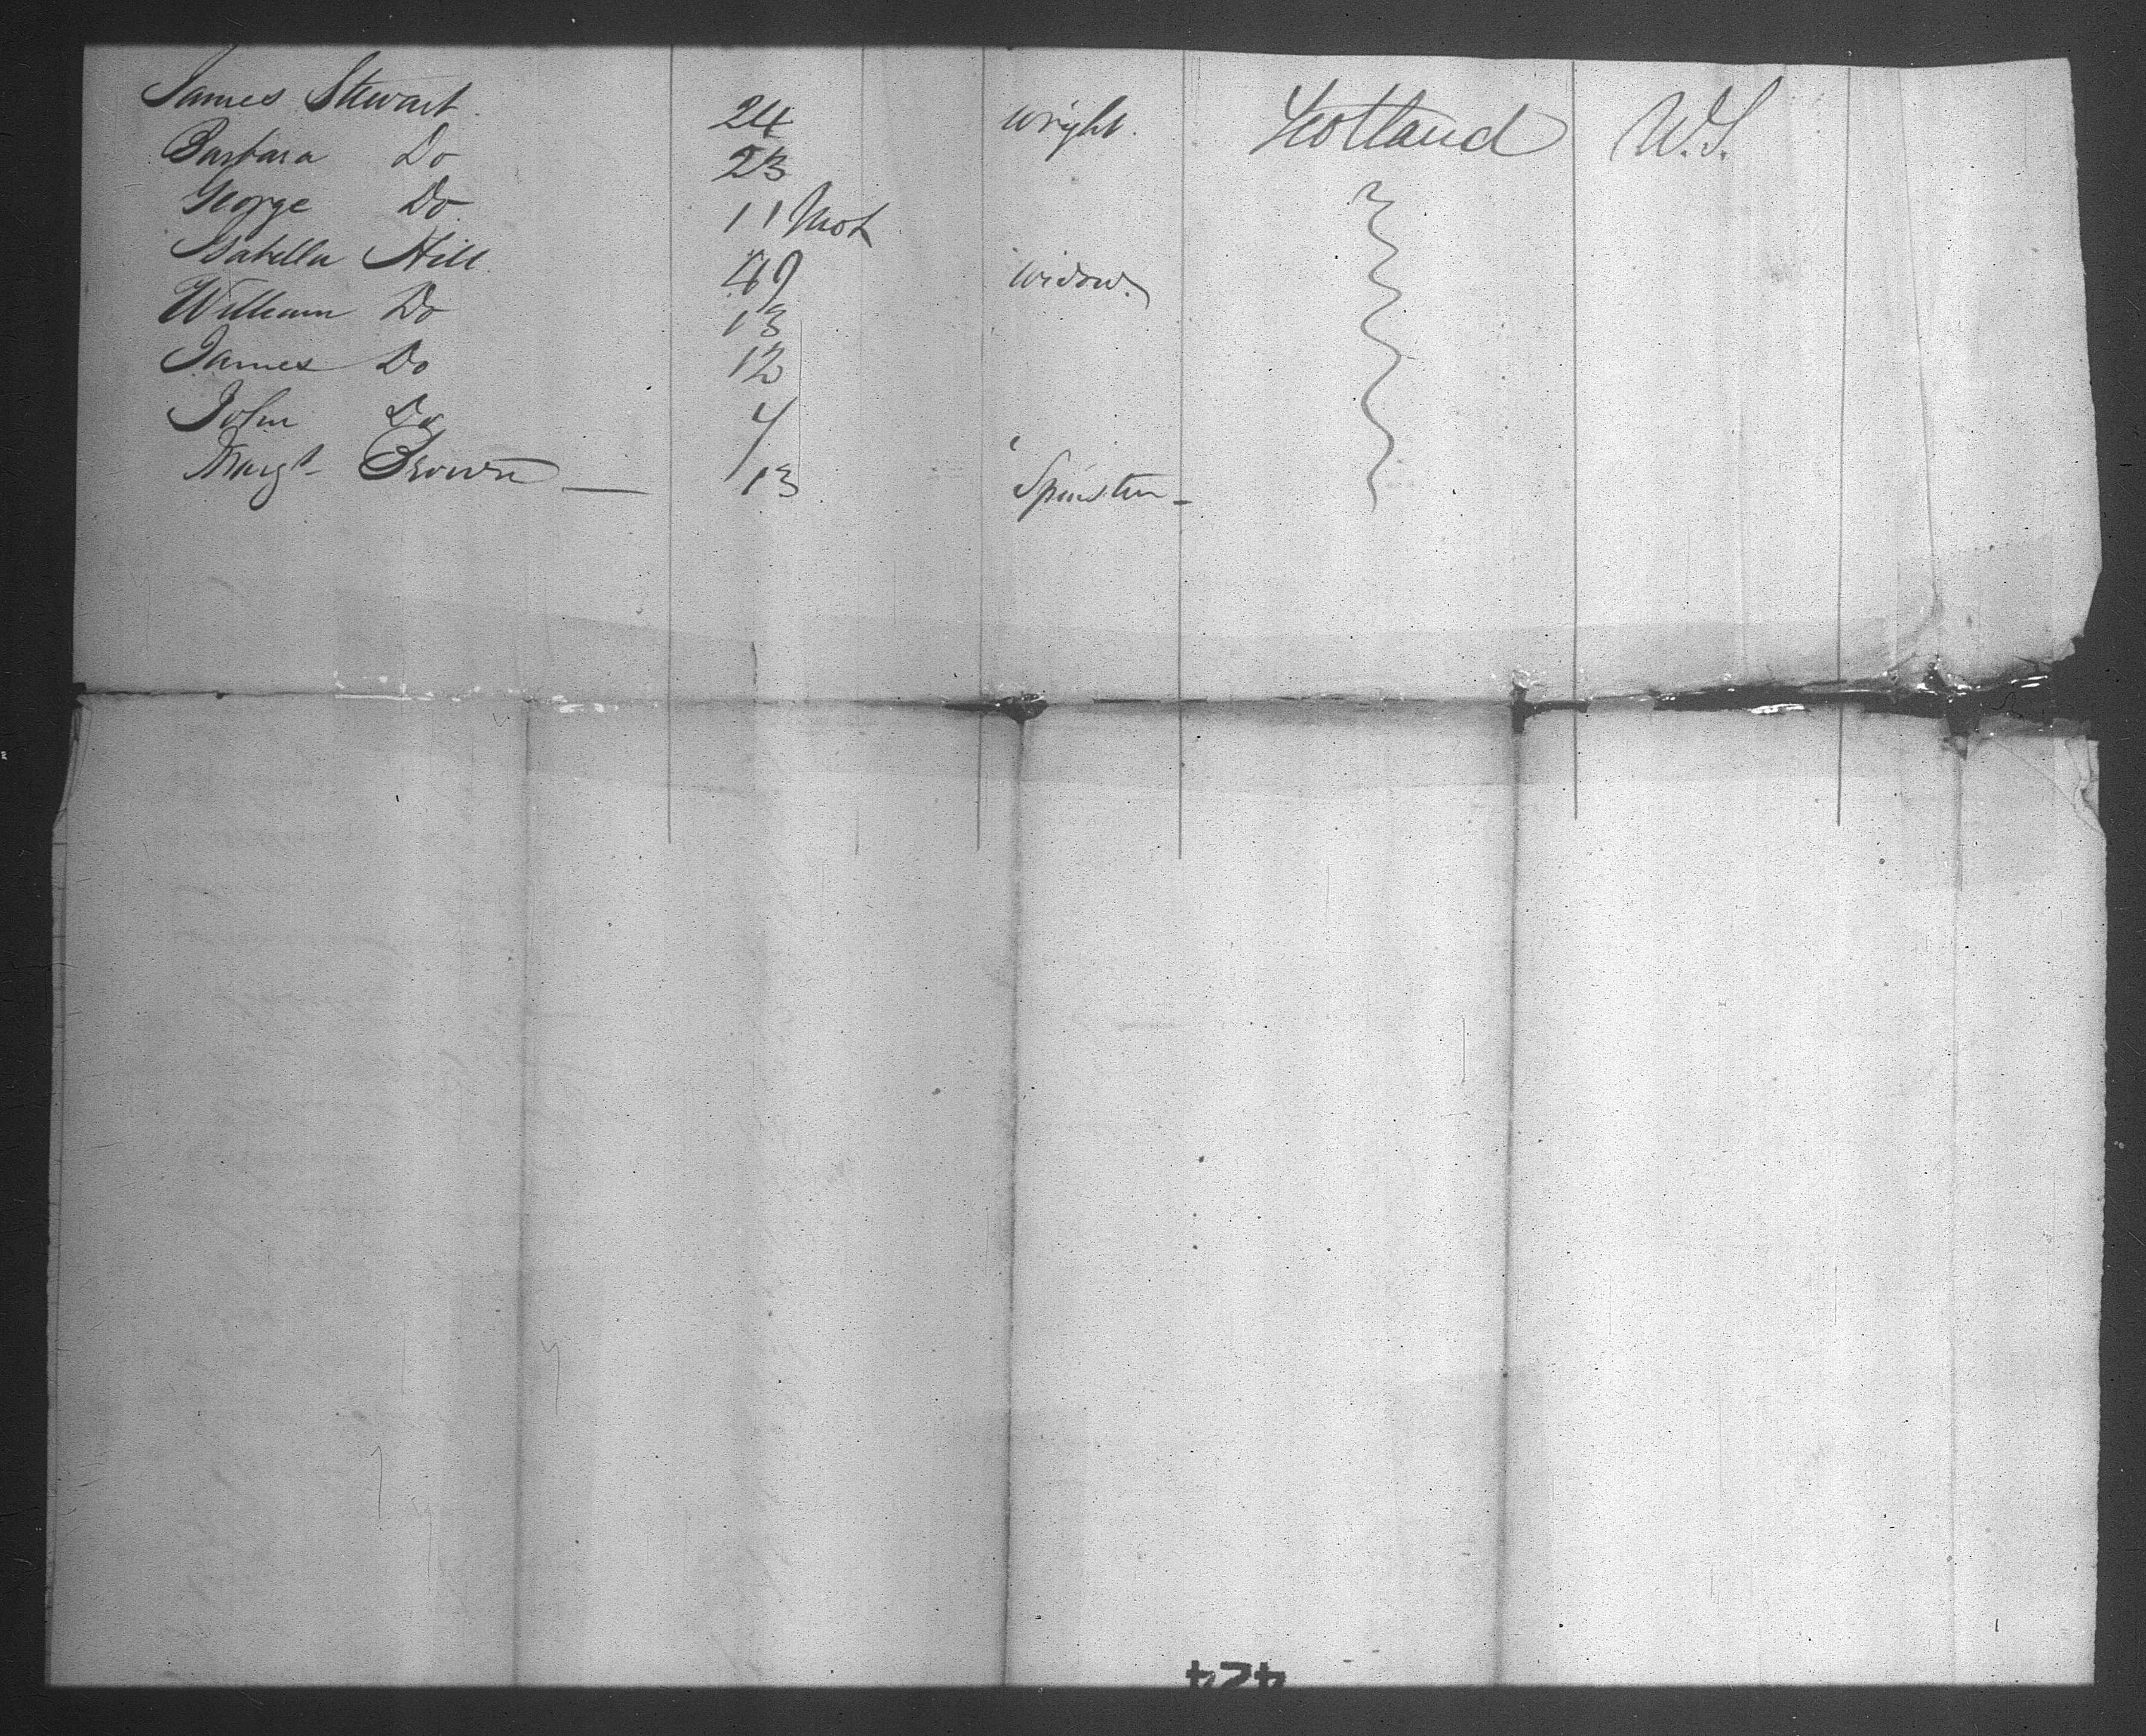 James Stewart 24 Wright. Scotland W.S.
Barbara Do 23
George Do 11 Mot
Isabella Hill 49 Widow.
William Do 13
James Do 12
John Do 7
Margt Brown — 13 Spinster -
424